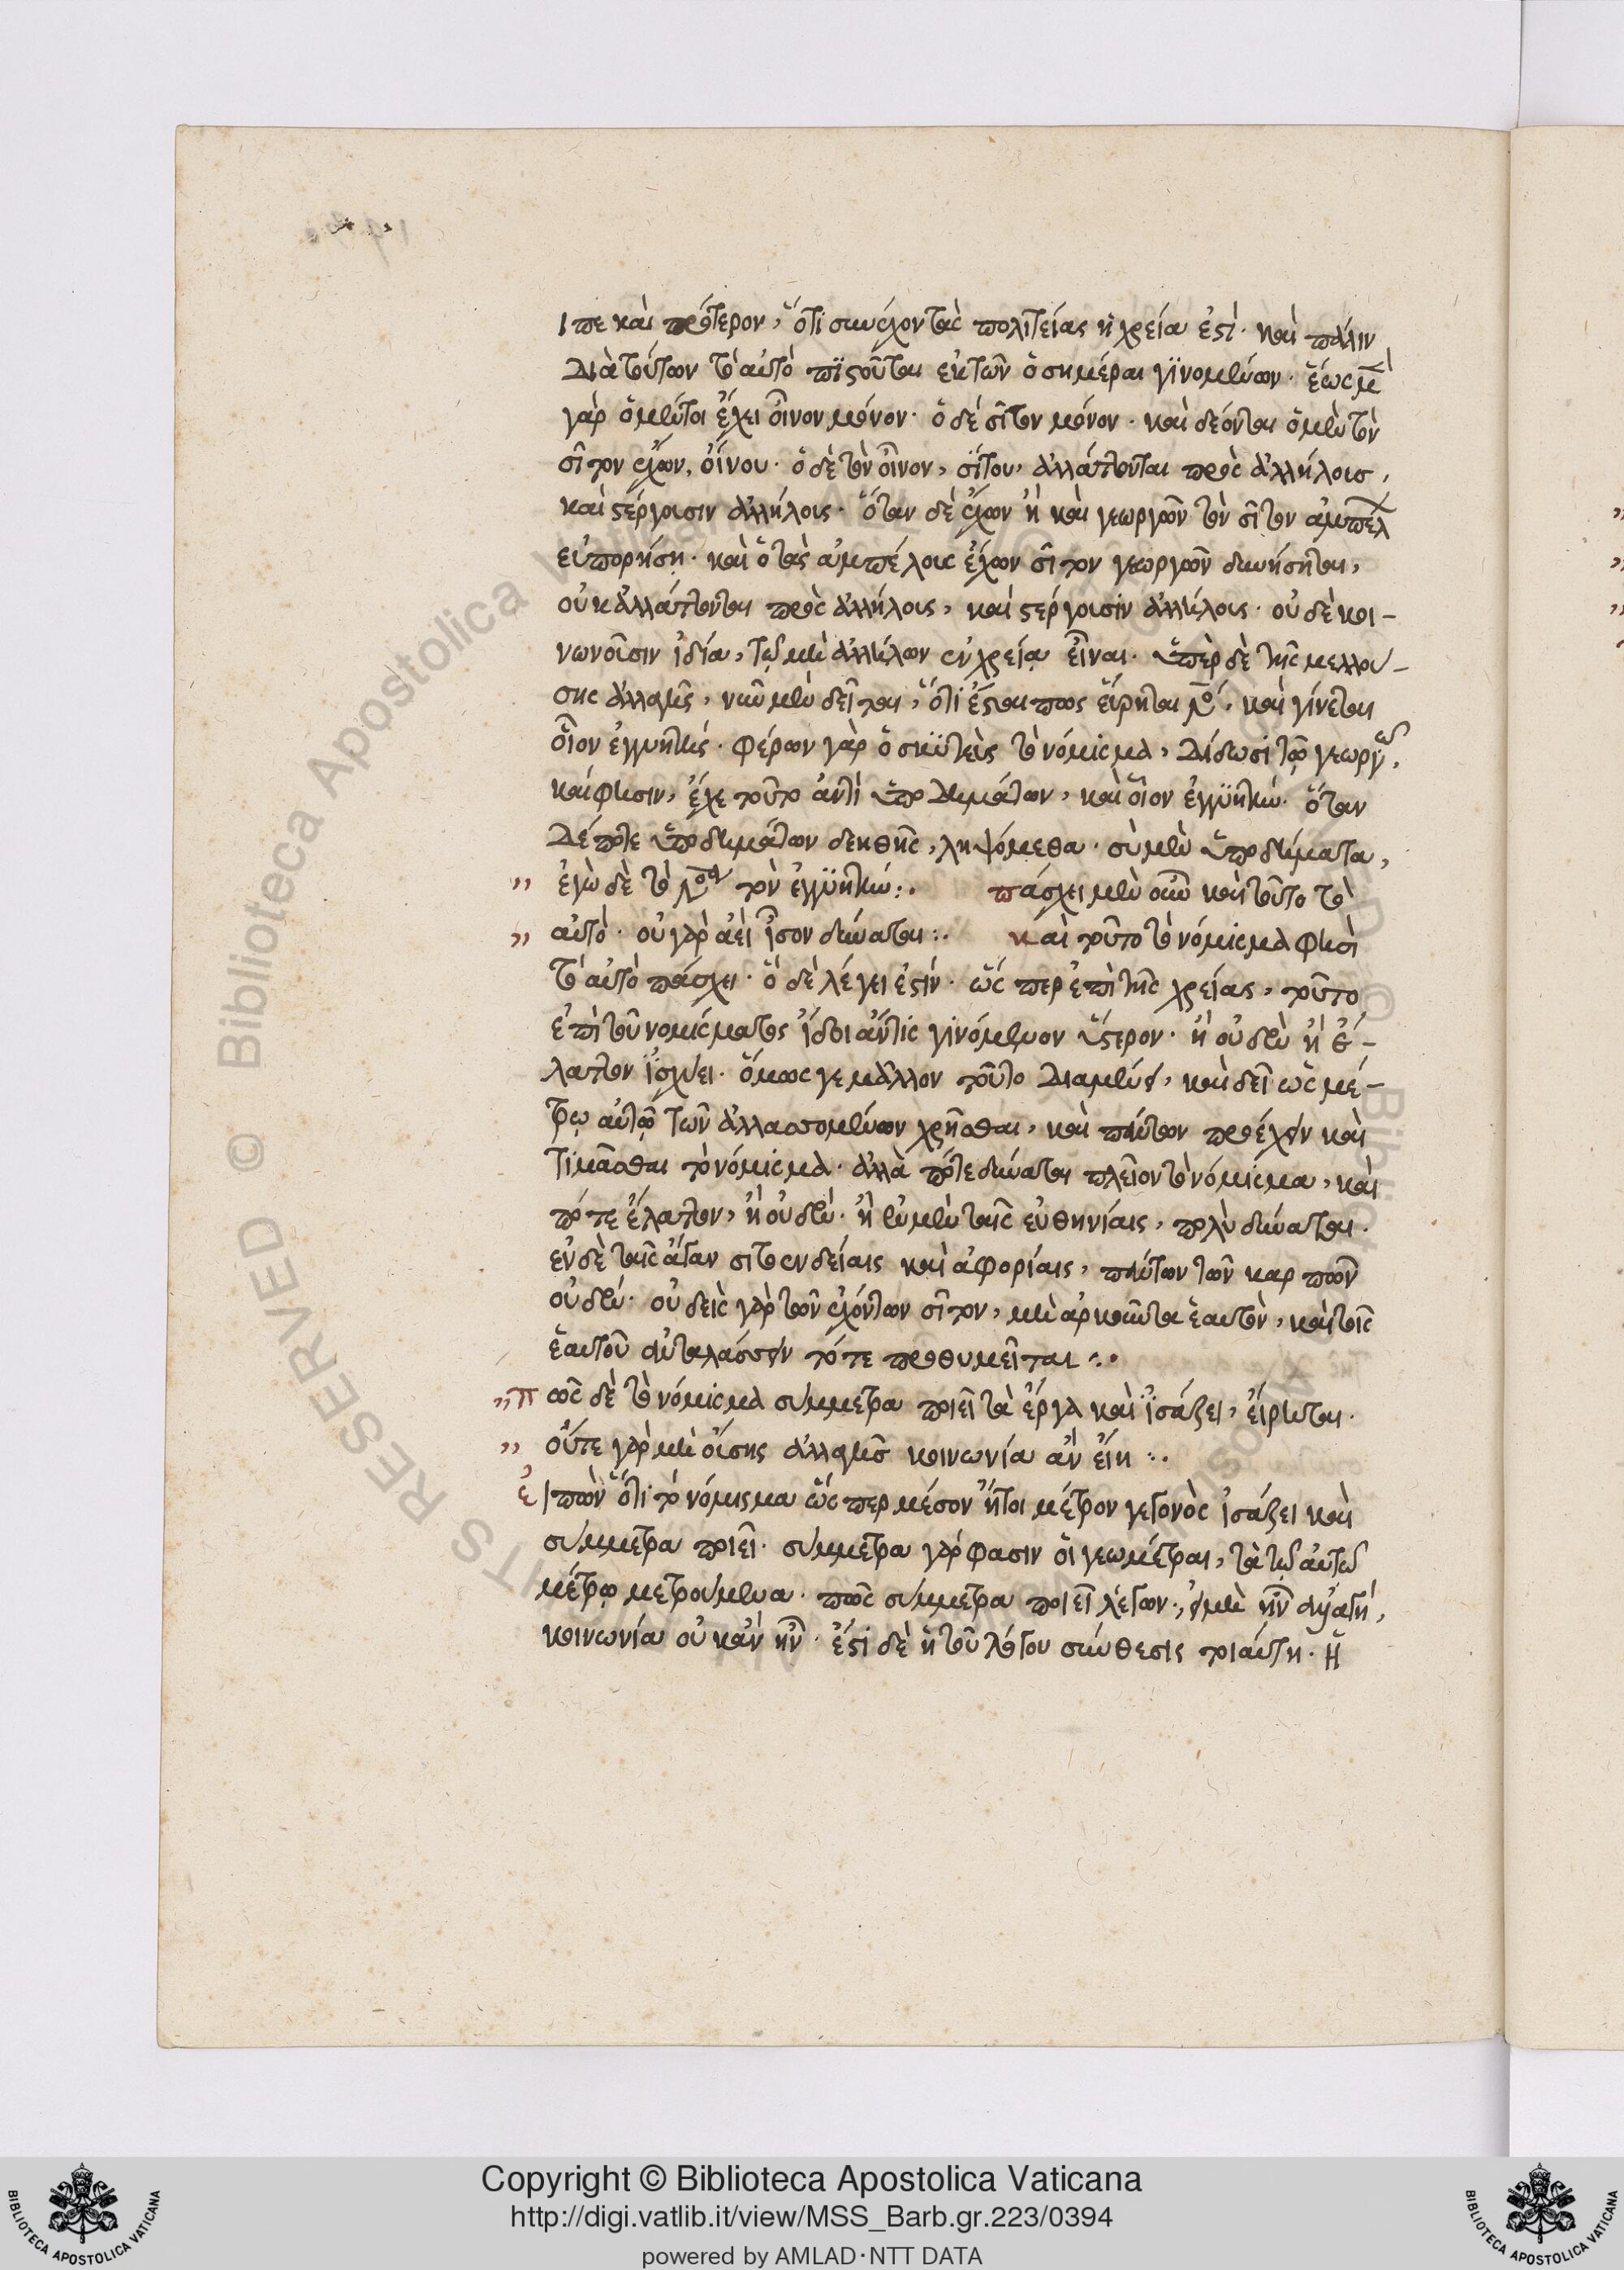 ιπε καὶ πρότερον, ὅτι συνέχον τὰς πολιτείας ἡ χρεία ἐστί. καὶ πάλιν
διὰ τούτων τὸ αὐτὸ πιστοῦται ἐκ τῶν ὁσημέραι γινομένων. ἕως μὲ
γὰρ ὁ μέν τοι ἔχει οἶνον μόνον. ὁ δὲ σῖτον μόνον. καὶ δέονται ὁ μὲν τὸν
σῖτον ἔχων, οἴνου. ὁ δὲ τὸν οἶνον, σίτου, ἀλλάττονται πρὸς ἀλλήλους,
καὶ στέργουσιν ἀλλήλους. ὅταν δὲ ἔχων ἢ καὶ γεωργῶν τὸν σῖτον ἀμπελ
εὐπορήσῃ. καὶ ὁ τὰς ἀμπέλους ἔχων σῖτον γεωργῶν δυνήσηται,
οὐκ ἀλλάττονται πρὸς ἀλλήλους, καὶ στέργουσιν ἀλλήλους. οὐδὲ κοι-
νωνοῦσιν ἰδία, τῷ μὴ ἀλλήλων ἐν χρείᾳ εἶναι. ὑπὲρ δὲ τῆς μελλού-
σης ἀλλαγῆς, νῦν μὲν δεῖται, ὅτι ἔσται πως εἴρηται καὶ γίνεται
οἷον ἐγγυητής. φέρων γὰρ ὁ σκυτεὺς τὸ νόμισμα, δίδωσι τῷ γεωργῷ,
καί φησιν, ἔχε τοῦτο ἀντὶ ὑποδημάτων, καὶ οἷον ἐγγυητήν. ὅταν
δέ ποτε ὑποδημάτων δεηθῇς, ληψόμεθα. σὺ μὲν ὑποδήματα,
" ἐγὼ δὲ τὸ τὸν ἐγγυητήν:. πάσχει μὲν οὖν καὶ τοῦτο τὸ
" αὐτό. οὐ γὰρ ἀεὶ ἴσον δύναται:. καὶ τοῦτο τὸ νόμισμα φησὶ
τὸ αὐτὸ πάσχει. ὃ δὲ λέγει ἐστίν. ὥσπερ ἐπὶ τῆς χρείας, τοῦτο
ἐπὶ τοῦ νομίσματος ἴδοι ἄν τις γινόμενον ὕστερον. ἢ οὐδὲν ἢ ἔ-
λαττον ἰσχύει. ὅμως γε μᾶλλον τοῦτο διαμένει, καὶ δεῖ ὡς μέ-
τρῳ αὐτῷ τῶν ἀλλασσομένων χρῆσθαι, καὶ πάντων προέχειν καὶ
τιμᾶσθαι τὸ νόμισμα. ἀλλὰ πότε δύναται πλεῖον τὸ νόμισμα, καὶ
πότε ἔλαττον, ἢ οὐδέν. ἢ ἐν μὲν ταῖς εὐθηνίαις, πολὺ δύναται.
ἐν δὲ ταῖς ἄγαν σιτοενδείαις καὶ ἀφορίαις, πάντων τῶν καρπῶν
οὐδέν. οὐδεὶς γὰρ τῶν ἐχόντων σῖτον, μὴ ἀρκοῦντα ἑαυτὸν, καὶ τοῖς
ἑαυτοῦ ἀνταλάσσειν τότε προθυμεῖται :.
" πῶς δὲ τὸ νόμισμα σύμμετρα ποιεῖ τὰ ἔργα καὶ ἰσάζει, εἴρηται.
" οὔτε γὰρ μὴ οὔσης ἀλλαγῆς κοινωνία ἂν εἴη :.
εἰπὼν ὅτι τὸ νόμισμα ὥσπερ μέσον ἤτοι μέτρον γεγονὸς ἰσάζει καὶ
σύμμετρα ποιεῖ. σύμμετρα γάρ φασιν οἱ γεωμέτραι, τὰ τῷ αὐτῷ
μέτρῳ μετρούμενα. πῶς σύμμετρα ποιεῖ λέγων. εἰ μὴ ἦν ἀλλαγή,
κοινωνία οὐκ ἂν ἦν. ἔστι δὲ ἡ τοῦ λόγου σύνθεσις τοιαύτη. ἢ
Copyright © Biblioteca Apostolica Vaticana
http://digi.vatlib.it/view/MSS_Barb.gr.223/0394
powered by AMLAD·NTT DATA